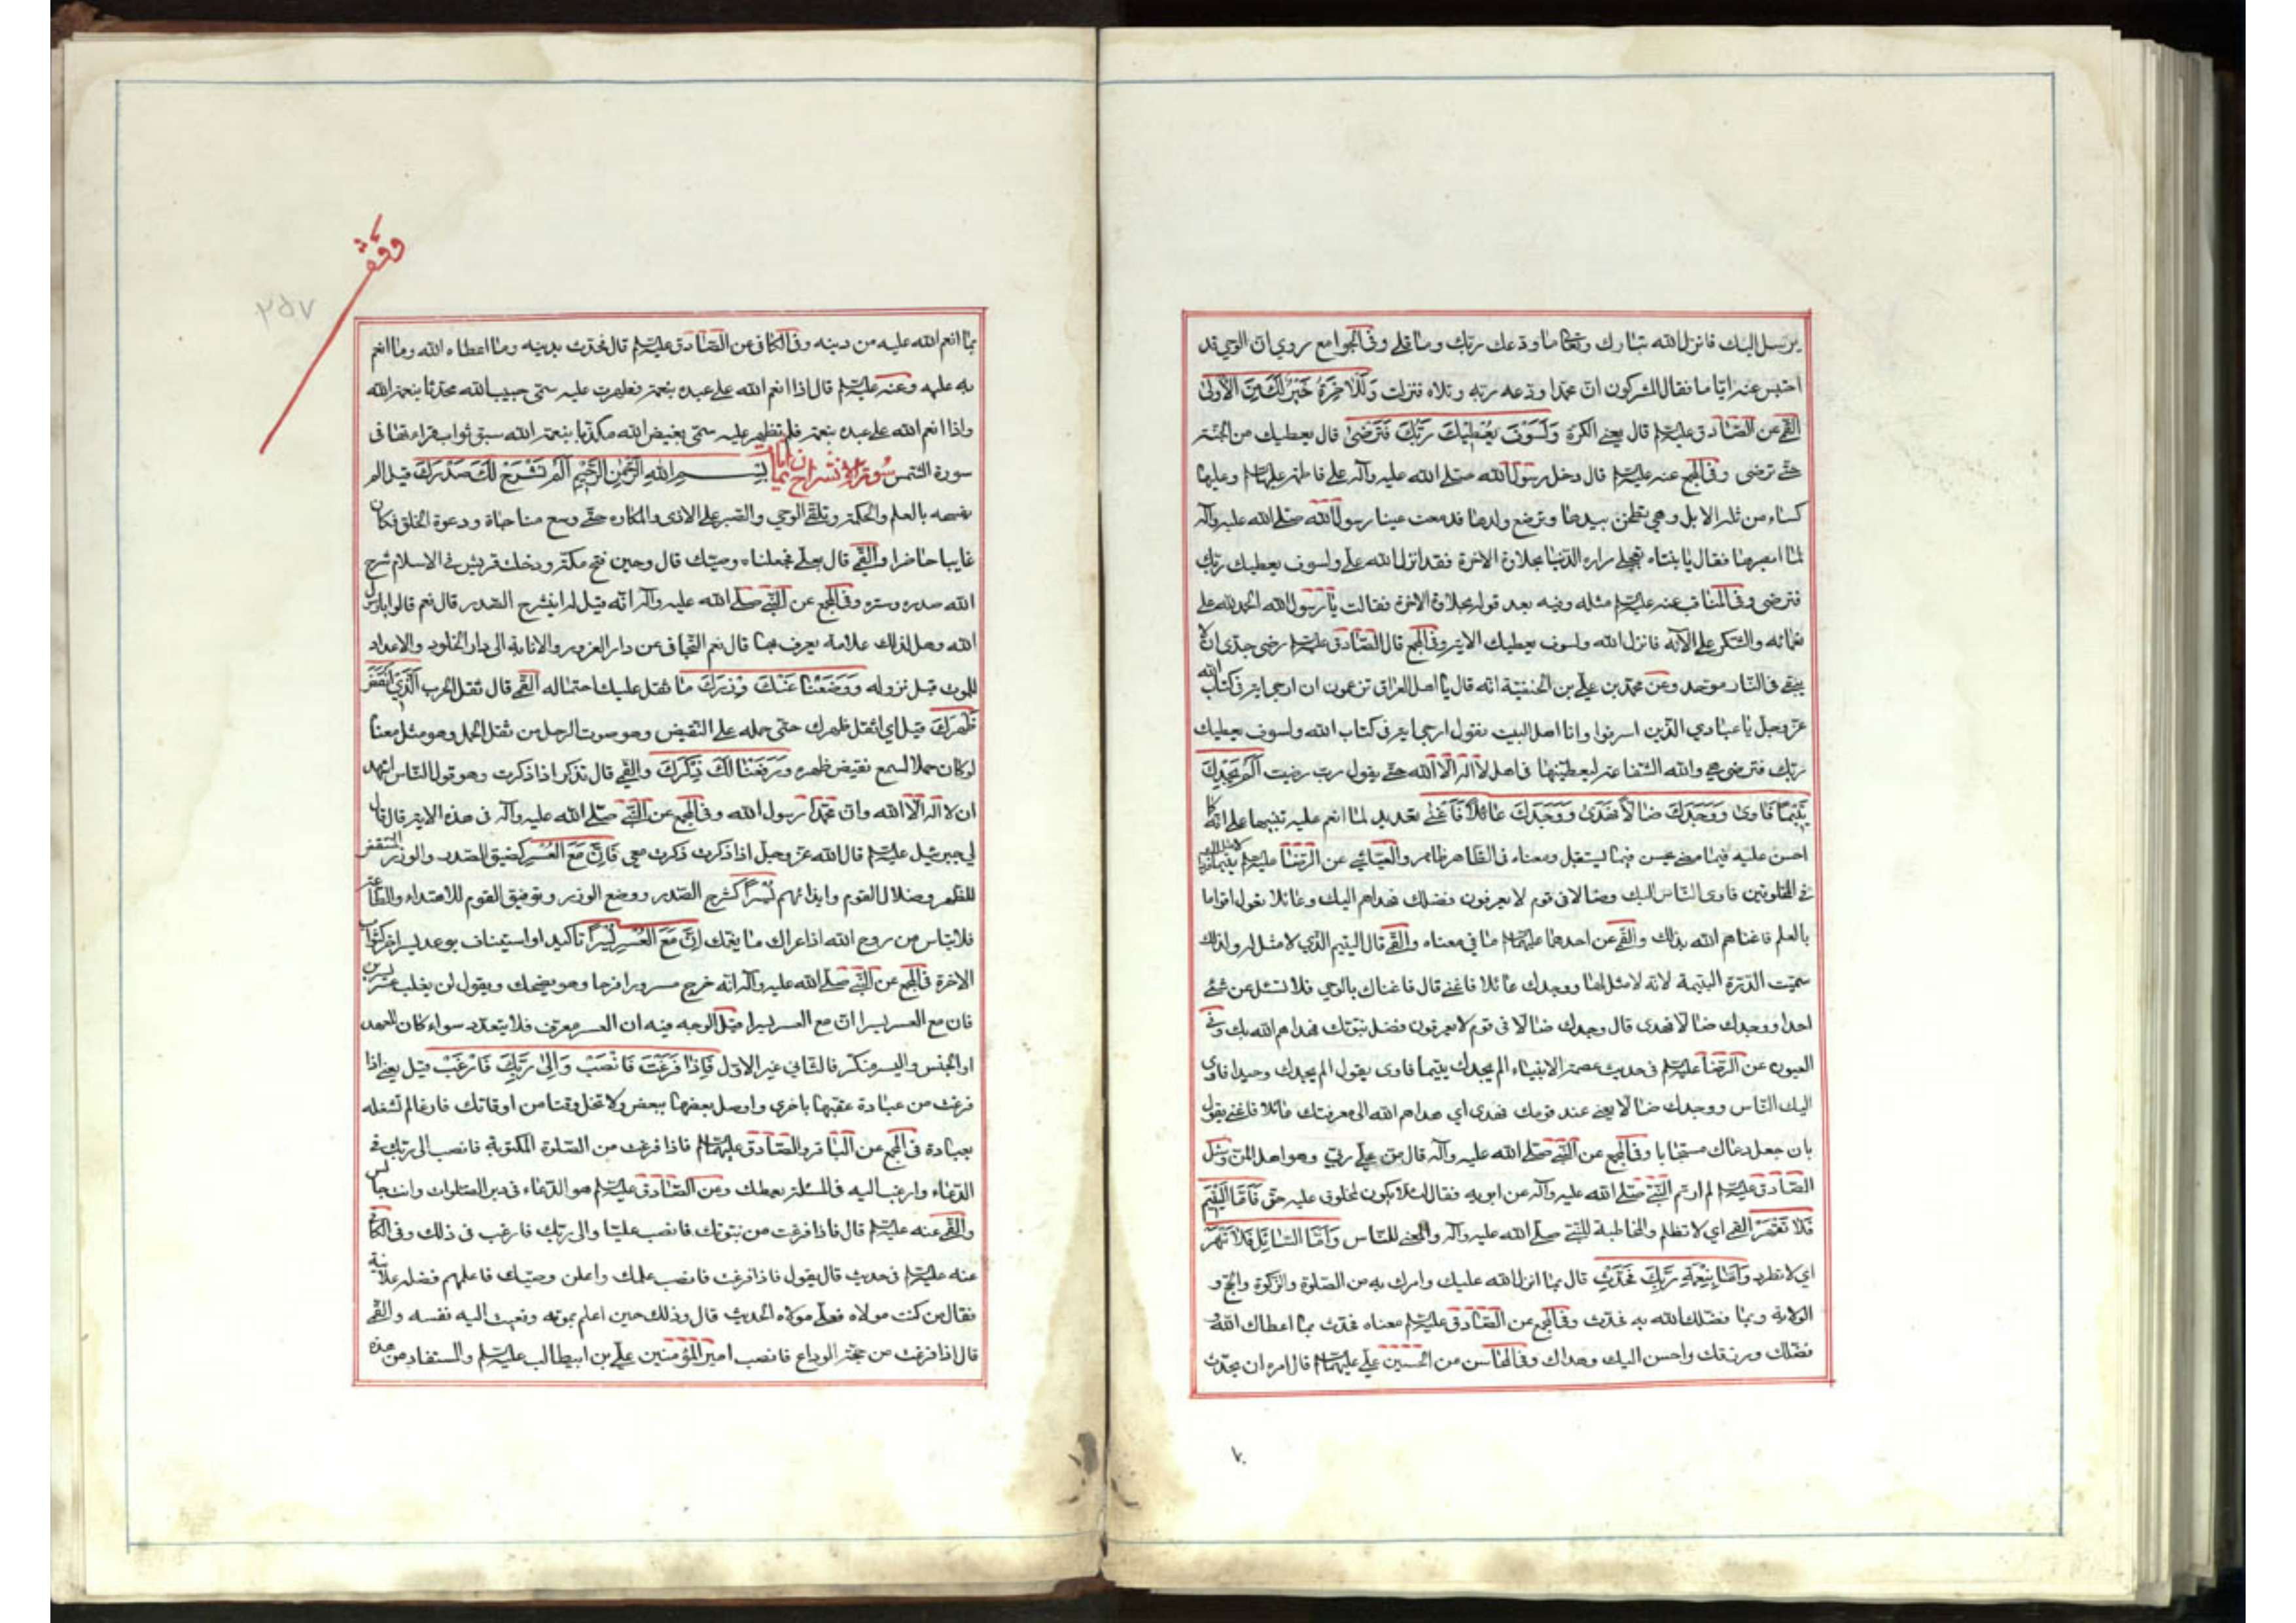 يرسل اليك فانزل الله تبارك وتعالى ما ودعك ربك وما قلى وفي الجوامع روي ان الوحي قد
احتبس عنه اياما فقال المشركون ان محمدا ودعه ربه وقلاه فنزلت وَلَلْآخِرَةُ خَيْرٌ لَكَ مِنَ الْأُولىٰ
القمي عن الصادق عليه السلام قال يعني الكرة وَلَسَوْفَ يُعْطِيكَ رَبُّكَ فَتَرْضىٰ قال يعطيك من الجنة
حتى ترضى وفي المجمع عنه عليه السلام قال دخل رسول الله صلى الله عليه وآله على فاطمة عليها السلام وعليها
كساء من ثلة الابل وهي تطحن بيدها وترضع ولدها فدمعت عينا رسول الله صلى الله عليه وآله
لما ابصرها فقال يا بنتاه تعجلي مرارة الدنيا بحلاوة الاخرة فقد انزل الله علي ولسوف يعطيك ربك
فترضى وفي المناقب عنه عليه السلام مثله وفيه بعد قوله بحلاوة الاخرة فقالت يا رسول الله الحمد لله على
نعمائه والشكر على الآئه فانزل الله ولسوف يعطيك الاية وفي المجمع قال الصادق عليه السلام رضى جدي ان لا
يبقى في النار موحد وعن محمد بن علي بن الحنفية انه قال يا اهل العراق تزعمون ان ارجى اية في كتاب الله
عز وجل يا عبادي الذين اسرفوا وانا اهل البيت نقول ارجى اية في كتاب الله ولسوف يعطيك
ربك فترضى هي والله الشفاعة ليعطينها في اهل لا اله الا الله حتى يقول رب رضيت أَلَمْ يَجِدْكَ
يَتِيمًا فَآوىٰ وَوَجَدَكَ ضَالًّا فَهَدىٰ وَوَجَدَكَ عَائِلًا فَأَغْنىٰ تعديد لما انعم عليه تنبيها على انه كما
احسن عليه فيما مضى يحسن فيما يستقبل ومعناه في الظاهر ظاهر والعياشي عن الرضا عليه السلام يتيما فردا لا مثل لك
في المخلوقين فآوى الناس اليك وضالا في قوم لا يعرفون فضلك فهداهم اليك وعائلا تعول اقواما
بالعلم فاغناهم الله بذلك والقمي عن احدهما عليهما السلام ما في معناه والقمي قال اليتيم الذي لا مثل له ولذلك
سميت الدرة اليتيمة لانه لا مثل لها ووجدك عائلا فاغنى قال فاغناك بالوحي فلا تسئل عن شئ
احدا ووجدك ضالا فهدى قال وجدك ضالا في قوم لا يعرفون فضل نبوتك فهداهم الله بك وفي
العيون عن الرضا عليه السلام في حديث عصمة الانبياء الم يجدك يتيما فاوى يقول الم يجدك وحيدا فاوى
اليك الناس ووجدك ضالا يعني عند قومك فهدى اي هداهم الله الى معرفتك عائلا فاغنى يقول
بان جعل دعاك مستجابا وفي المجمع عن النبي صلى الله عليه وآله قال من علي ربي وهو اهل المن وسئل
الصادق عليه السلام لم اوتم النبي صلى الله عليه وآله عن ابويه فقال لئلا يكون لمخلوق عليه حق فَأَمَّا الْيَتِيمَ
فَلَا تَقْهَرْ القمي اي لا تظلم والمخاطبة للنبي صلى الله عليه وآله والمعنى للناس وَأَمَّا السَّائِلَ فَلَا تَنْهَرْ
اي لا تطرد وَأَمَّا بِنِعْمَةِ رَبِّكَ فَحَدِّثْ قال بما انزل الله عليك وامرك به من الصلوة والزكوة والحج و
الولاية وبما فضلك الله به فحدث وفي المجمع عن الصادق عليه السلام معناه فحدث بما اعطاك الله و
فضلك ورزقك واحسن اليك وهداك وفي المحاسن عن الحسين علي عليهما السلام قال امره ان يحدث
وقف
٢٥٧
بما انعم الله عليه من دينه وفي الكافي عن الصادق عليه السلام قال فحدث بدينه وما اعطاه الله وما انعم
به عليه وعنه عليه السلام قال اذا انعم الله على عبده بنعمة فظهرت عليه سمي حبيب الله محدثا بنعمة الله
واذا انعم الله على عبده بنعمة فلم تظهر عليه سمي بغيض الله مكذبا بنعمة الله سبق ثواب قراءتها في
سورة الشمس سورة الانشراح ثمان ايات بِسْمِ اللهِ الرَّحْمٰنِ الرَّحِيمِ أَلَمْ نَشْرَحْ لَكَ صَدْرَكَ قيل الم
نفسحه بالعلم والحكمة وتلقي الوحي والصبر على الاذى والمكاره حتى وسع مناجاة ودعوة الخلق فكان
غايبا حاضرا والقمي قال بعلي فجعلناه وصيك قال وحين فتح مكة ودخلت قريش في الاسلام شرح
الله صدره وسره وفي المجمع عن النبي صلى الله عليه وآله انه قيل له اينشرح الصدر قال نعم قالوا يا رسول
الله وهل لذلك علامة يعرف بها قال نعم التجافي عن دار الغرور والانابة الى دار الخلود والاعداد
للموت قبل نزوله وَوَضَعْنَا عَنْكَ وِزْرَكَ ما ثقل عليك احتماله القمي قال ثقل الحرب الَّذِي أَنْقَضَ
ظَهْرَكَ قيل اي اثقل ظهرك حتى حمله على النقيض وهو صوت الرحل من ثقل الحمل وهو مثل معناه
لو كان حملا لسمع نقيض ظهره وَرَفَعْنَا لَكَ ذِكْرَكَ والقمي قال تذكر اذا ذكرت وهو قول الناس اشهد
ان لا اله الا الله وان محمدا رسول الله وفي المجمع عن النبي صلى الله عليه وآله في هذه الاية قال قال
لي جبرئيل عليه السلام قال الله عز وجل اذا ذكرت ذكرت معي فَإِنَّ مَعَ الْعُسْرِ كضيق الصدر والوزر المنقض
للظهر وضلال القوم وايذائهم يُسْرًا كشرح الصدر ووضع الوزر وتوفيق القوم للاهتداء والطاعة
فلا تياس من روح الله اذا عراك ما يغمك إِنَّ مَعَ الْعُسْرِ يُسْرًا تاكيد او استيناف بوعد يسر اخر كثواب
الاخرة في المجمع عن النبي صلى الله عليه وآله انه خرج مسرورا فرحا وهو يضحك ويقول لن يغلب عسر يسرين
فان مع العسر يسرا ان مع العسر يسرا قيل الوجه فيه ان العسر معرف فلا يتعدد سواء كان للعهد
او الجنس واليسر منكر فالثاني غير الاول فَإِذَا فَرَغْتَ فَانْصَبْ وَإِلىٰ رَبِّكَ فَارْغَبْ قيل يعني اذا
فرغت من عبادة عقبها باخرى واوصل بعضها ببعض ولا تخل وقتا من اوقاتك فارغا لم تشغله
بعبادة في المجمع عن الباقر والصادق عليهما السلام فاذا فرغت من الصلوة المكتوبة فانصب الى ربك في
الدعاء وارغب اليه في المسئلة يعطك وعن الصادق عليه السلام هو الدعاء في دبر الصلوات وانت جالس
والقمي عنه عليه السلام قال فاذا فرغت من نبوتك فانصب عليا والى ربك فارغب في ذلك وفي الكافي
عنه عليه السلام في حديث قال يقول فاذا فرغت فانصب علمك واعلن وصيك فاعلمهم فضله علانية
فقال من كنت مولاه فعلي مولاه الحديث قال وذلك حين اعلم بموته ونعيت اليه نفسه والقمي
قال اذا فرغت من حجة الوداع فانصب امير المؤمنين علي بن ابيطالب عليه السلام والمستفاد من هذه